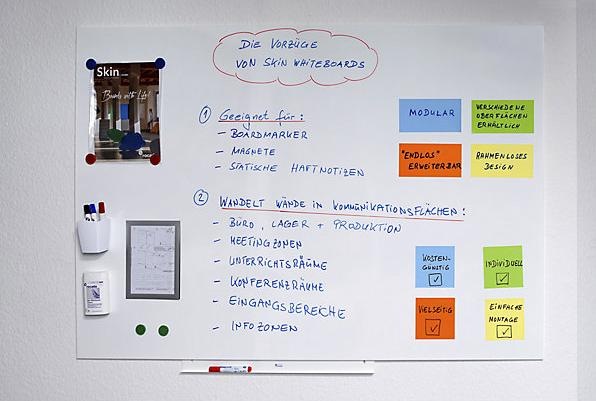 DIE VORZÜGE
VON SKIN WHITEBOARDS
Skin
Boards with Life!
① Geeignet für:
- BOARDMARKER
- MAGNETE
- STATISCHE HAFTNOTIZEN
MODULAR
VERSCHIEDENE
OBERFLÄCHEN
ERHÄLTLICH
"ENDLOS"
ERWEITERBAR
RAHMENLOSES
DESIGN
② WANDELT WÄNDE IN KOMMUNIKATIONSFLÄCHEN:
- BÜRO, LAGER + PRODUKTION
- MEETINGZONEN
- UNTERRICHTSRÄUME
- KONFERENZRÄUME
- EINGANGSBEREICHE
- INFOZONEN
KOSTEN-
GÜNSTIG
INDIVIDUELL
VIELSEITIG
EINFACHE
MONTAGE